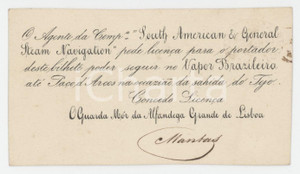 O Agente da Comp.ª "South American & General
Steam Navigation" pede licença para o portador
deste bilhete poder seguir no Vapor Brazileiro
até Paço d'Arcos na ocazião da sahida do Tejo.
Concedo Licença
O Guarda Mór da Alfandega Grande de Lisboa